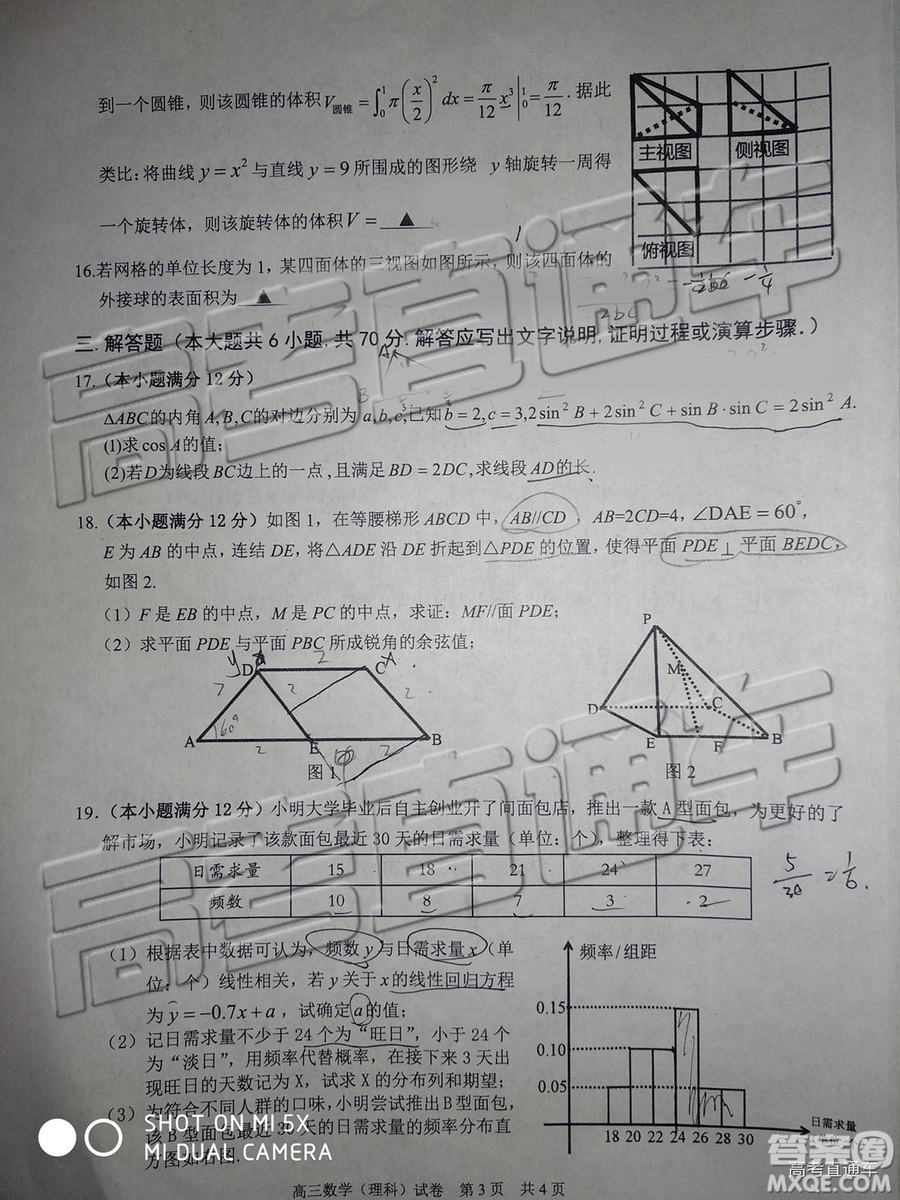 到一个圆锥，则该圆锥的体积V圆锥 = ∫₀¹ π(x/2)² dx = π/12 x³|₀¹ = π/12. 据此
主视图 侧视图
类比：将曲线 y = x² 与直线 y = 9 所围成的图形绕 y 轴旋转一周得
一个旋转体，则该旋转体的体积V = ▲
俯视图
16.若网格的单位长度为 1，某四面体的三视图如图所示，则该四面体的
外接球的表面积为 ▲
2bc
三.解答题（本大题共 6 小题,共 70 分.解答应写出文字说明,证明过程或演算步骤.）
17.（本小题满分 12 分）
ΔABC的内角A,B,C的对边分别为 a,b,c,已知b=2,c=3,2sin²B+2sin²C+sinB·sinC=2sin²A.
(1)求cosA的值;
(2)若D为线段BC边上的一点,且满足BD=2DC,求线段AD的长.
18.（本小题满分 12 分）如图 1，在等腰梯形 ABCD 中，AB//CD，AB=2CD=4，∠DAE=60°，
E 为 AB 的中点，连结 DE，将△ADE 沿 DE 折起到△PDE 的位置，使得平面 PDE⊥平面 BEDC，
如图 2.
（1）F 是 EB 的中点，M 是 PC 的中点，求证：MF//面 PDE；
（2）求平面 PDE 与平面 PBC 所成锐角的余弦值；
y D 2 C x
2 2 2
60°
A 2 E 2 B
图 1
P
M
D C
E F B
图 2
19.（本小题满分 12 分）小明大学毕业后自主创业开了间面包店，推出一款 A 型面包，为更好的了
解市场，小明记录了该款面包最近 30 天的日需求量（单位：个），整理得下表：
日需求量 15 18 21 24 27
频数 10 8 7 3 2
5/30 = 1/6.
（1）根据表中数据可认为，频数 y 与日需求量 x（单
位：个）线性相关，若 y 关于 x 的线性回归方程
为 ŷ = −0.7x + a，试确定 a 的值；
（2）记日需求量不少于 24 个为“旺日”，小于 24 个
为“淡日”，用频率代替概率，在接下来 3 天出
现旺日的天数记为 X，试求 X 的分布列和期望；
（3）为符合不同人群的口味，小明尝试推出 B 型面包，
该 B 型面包最近 30 天的日需求量的频率分布直
方图如右图.
频率/组距
0.15
0.10
0.05
18 20 22 24 26 28 30
日需求量
SHOT ON MI 5X
MI DUAL CAMERA
高三数学（理科）试卷 第 3 页 共 4 页
高考直通车
答案圈
MXQE.COM
高考直通车